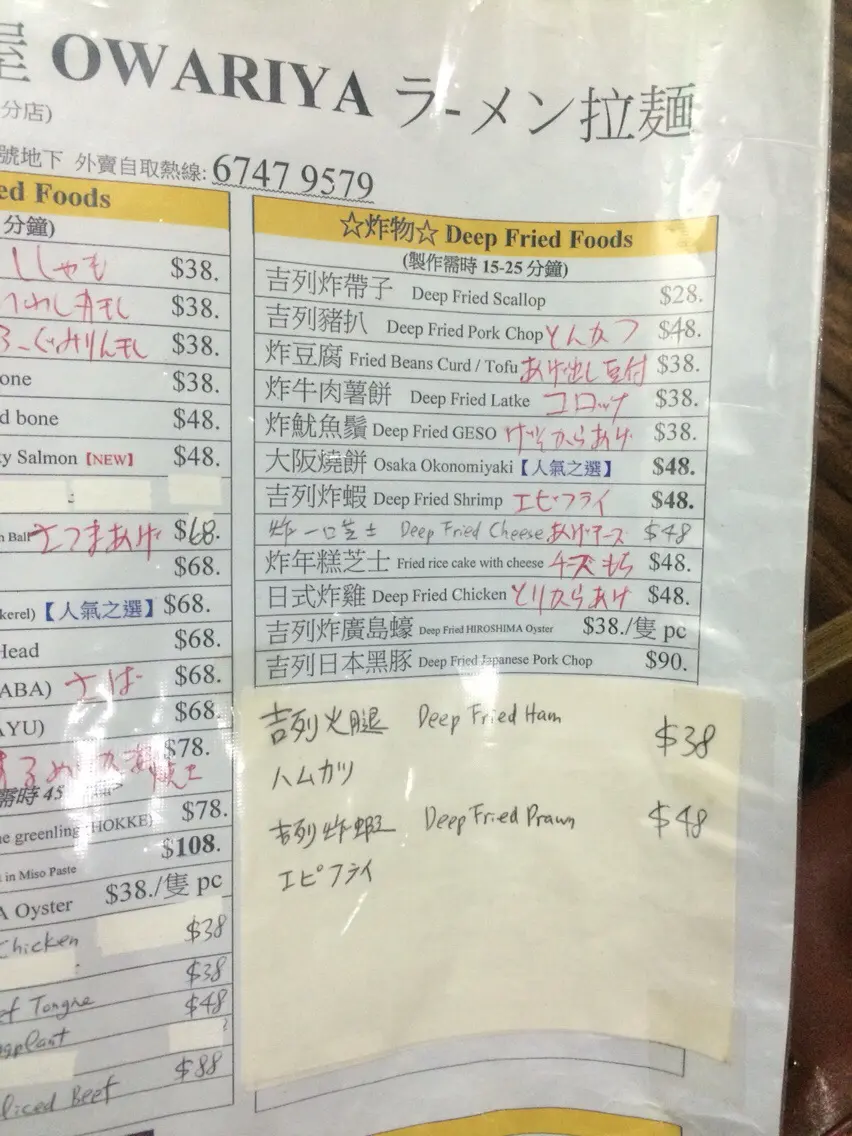 屋 OWARIYA ラ-メン拉麵
分店)
號地下 外賣自取熱線: 6747 9579
ed Foods
分鐘)
ししゃも $38.
いわし丸干し $38.
みりん干し $38.
one $38.
d bone $48.
y Salmon【NEW】 $48.
n Ball さつまあげ $68.
$68.
kerel)【人氣之選】 $68.
Head $68.
ABA) さば $68.
AYU) $68.
$78.
需時 45
e greenling (HOKKE) $78.
$108.
in Miso Paste
A Oyster $38./隻 pc
Chicken $38
$38
ef Tongue $48
ggplant
$88
liced Beef
☆炸物☆ Deep Fried Foods
(製作需時 15-25 分鐘)
吉列炸帶子 Deep Fried Scallop $28.
吉列豬扒 Deep Fried Pork Chop とんカつ $48.
炸豆腐 Fried Beans Curd / Tofu あげ出し豆付 $38.
炸牛肉薯餅 Deep Fried Latke コロッケ $38.
炸魷魚鬚 Deep Fried GESO げそからあげ $38.
大阪燒餅 Osaka Okonomiyaki【人氣之選】 $48.
吉列炸蝦 Deep Fried Shrimp エビフライ $48.
炸一口芝士 Deep Fried Cheese あげチーズ $48
炸年糕芝士 Fried rice cake with cheese チーズもち $48.
日式炸雞 Deep Fried Chicken とりからあげ $48.
吉列炸廣島蠔 Deep Fried HIROSHIMA Oyster $38./隻 pc
吉列日本黑豚 Deep Fried Japanese Pork Chop $90.
吉列火腿 Deep Fried Ham $38
ハムカツ
吉列炸蝦 Deep Fried Prawn $48
エピフライ